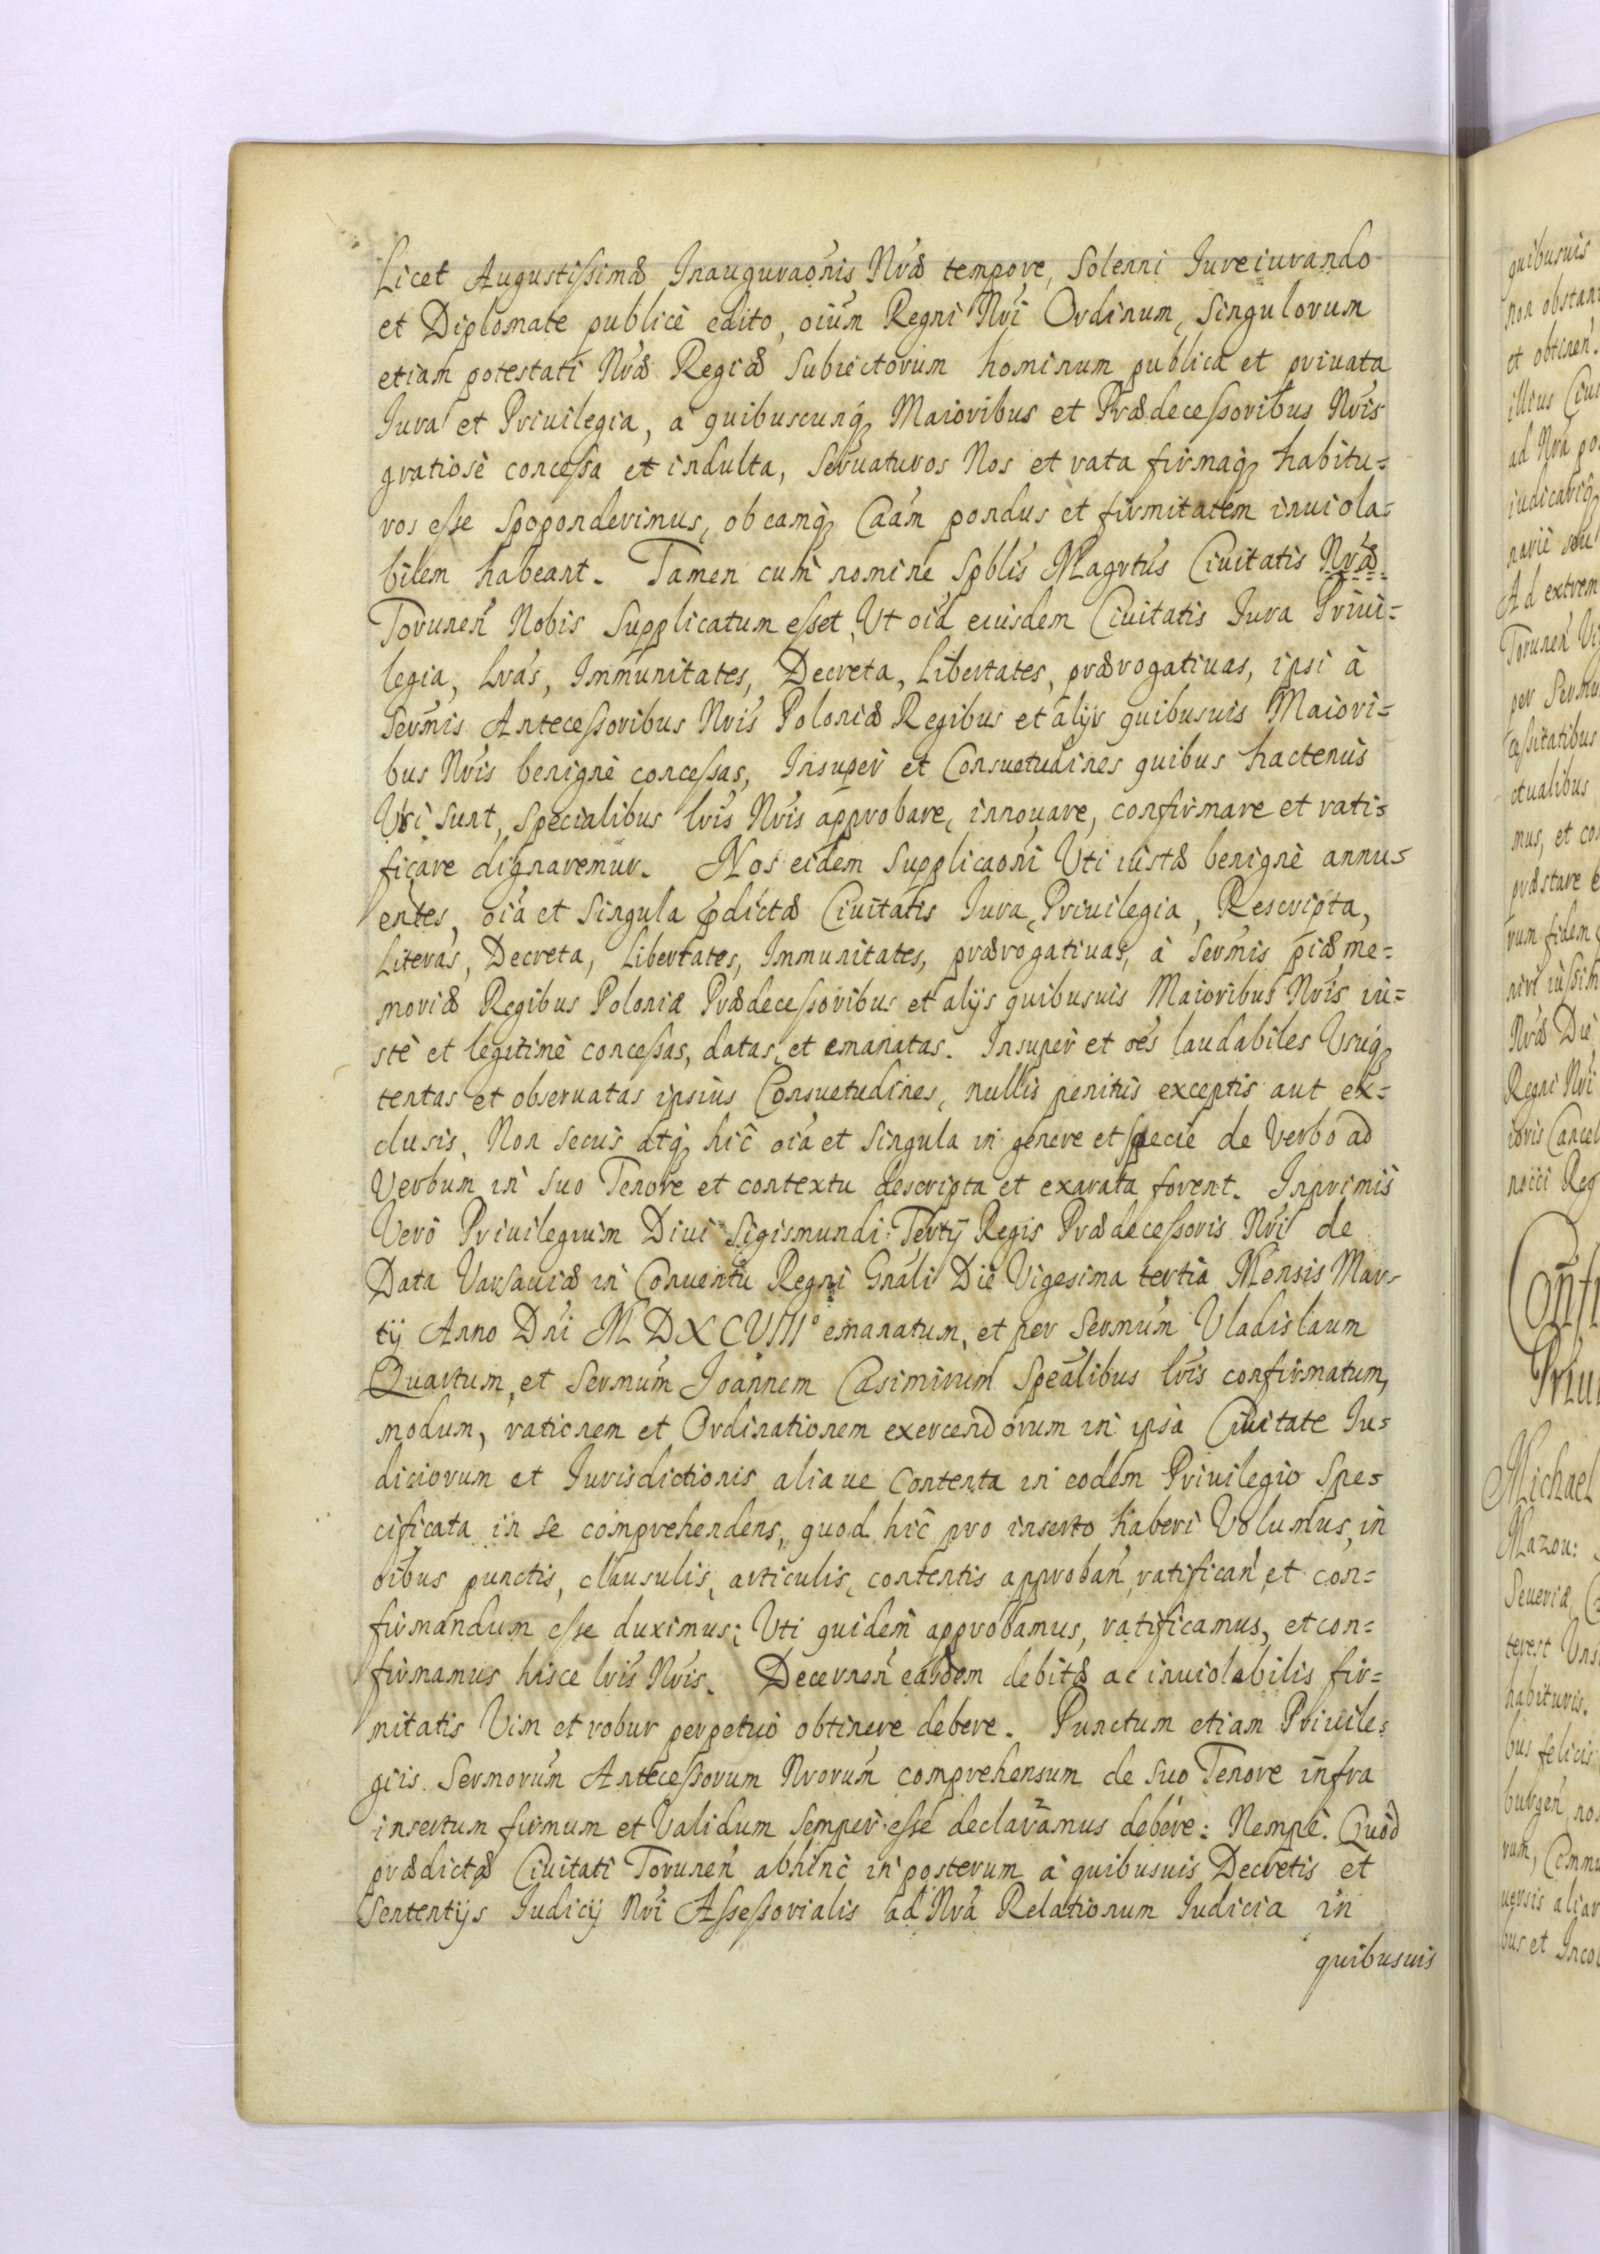 Licet Augustissimæ Inauguraōnis Nræ tempore, Solenni Iureiurando
et Diplomate publicè edito, oium Regni Nri Ordinum, Singulorum
etiam potestati Nræ Regiæ Subiectorum hominum publica et priuata
Iura et Priuilegia, a quibuscunq Maioribus et Prædecessoribus Nris
gratiosè concessa et indulta, Seruaturos Nos et rata firmaq habitu=
ros esse Spoponderimus, ob eamq Caām pondus et firmitatem inuiola=
bilem habeant. Tamen cum nomine Spblis Magrtus Ciuitatis Nræ
Torunen Nobis Supplicatum esset, Ut oiā eiusdem Ciuitatis Iura Priui=
legia, Lras, Immunitates, Decreta, Libertates, prærogatiuas, ipsi à
Sermis Antecessoribus Nris Poloniæ Regibus et alijs quibusuis Maiori=
bus Nris benignè concessas, Insuper et Consuetudines quibus hactenus
Usi Sunt, Specialibus lris Nris approbare, innouare, confirmare et rati=
ficare dignaremur. Nos eidem Supplicaōni Uti iustæ benignè annu=
entes, oiā et Singula pdictæ Ciuitatis Iura, Priuilegia, Rescripta,
Literas, Decreta, Libertates, Immunitates, prærogatiuas, à Sermis piæ me=
moriæ Regibus Poloniæ Prædecessoribus et alijs quibusuis Maioribus Nris iu=
stè et legitimè concessas, datas, et emanatas. Insuper et oēs laudabiles Usuq
tentas et obseruatas ipsius Consuetudines, nullis penitus exceptis aut ex=
clusis, Non secus atq hic oiā et Singula in genere et Specie de Verbo ad
Verbum in Suo Tenore et contextu descripta et exarata forent. Inprimis
Vero Priuilegium Diui Sigismundi Tertij Regis Prædecessoris Nri de
Data Varsauiæ in Conuentu Regni Gnali Die Vigesima tertia Mensis Mar=
tij Anno Dni MDXCVIII° emanatum, et per Sermum Vladislaum
Quartum, et Sermum Joannem Casimirum Spealibus lris confirmatum,
modum, rationem et Ordinationem exercendorum in ipsa Ciuitate Iu=
diciorum et Iurisdictionis aliaue Contenta in eodem Priuilegio Spe=
cificata in se comprehendens, quod hic pro inserto haberi Volumus, in
oibus punctis, clausulis, articulis, contentis approban, ratifican et con=
firmandum esse duximus; Uti quidem approbamus, ratificamus, et con=
firmamus hisce lris Nris. Decernen easdem debitæ ac inuiolabilis fir=
mitatis Vim et robur perpetuo obtinere debere. Punctum etiam Priuile=
giis Sermorum Antecessorum Nrorum comprehensum de Suo Tenore infra
insertum firmum et Validum Semper esse declaramus debere: Nempè. Quod
prædictæ Ciuitati Torunen abhinc in posterum à quibusuis Decretis et
Sententijs Iudicij Nri Assessorialis ad Nra Relationum Iudicia in
quibusuis